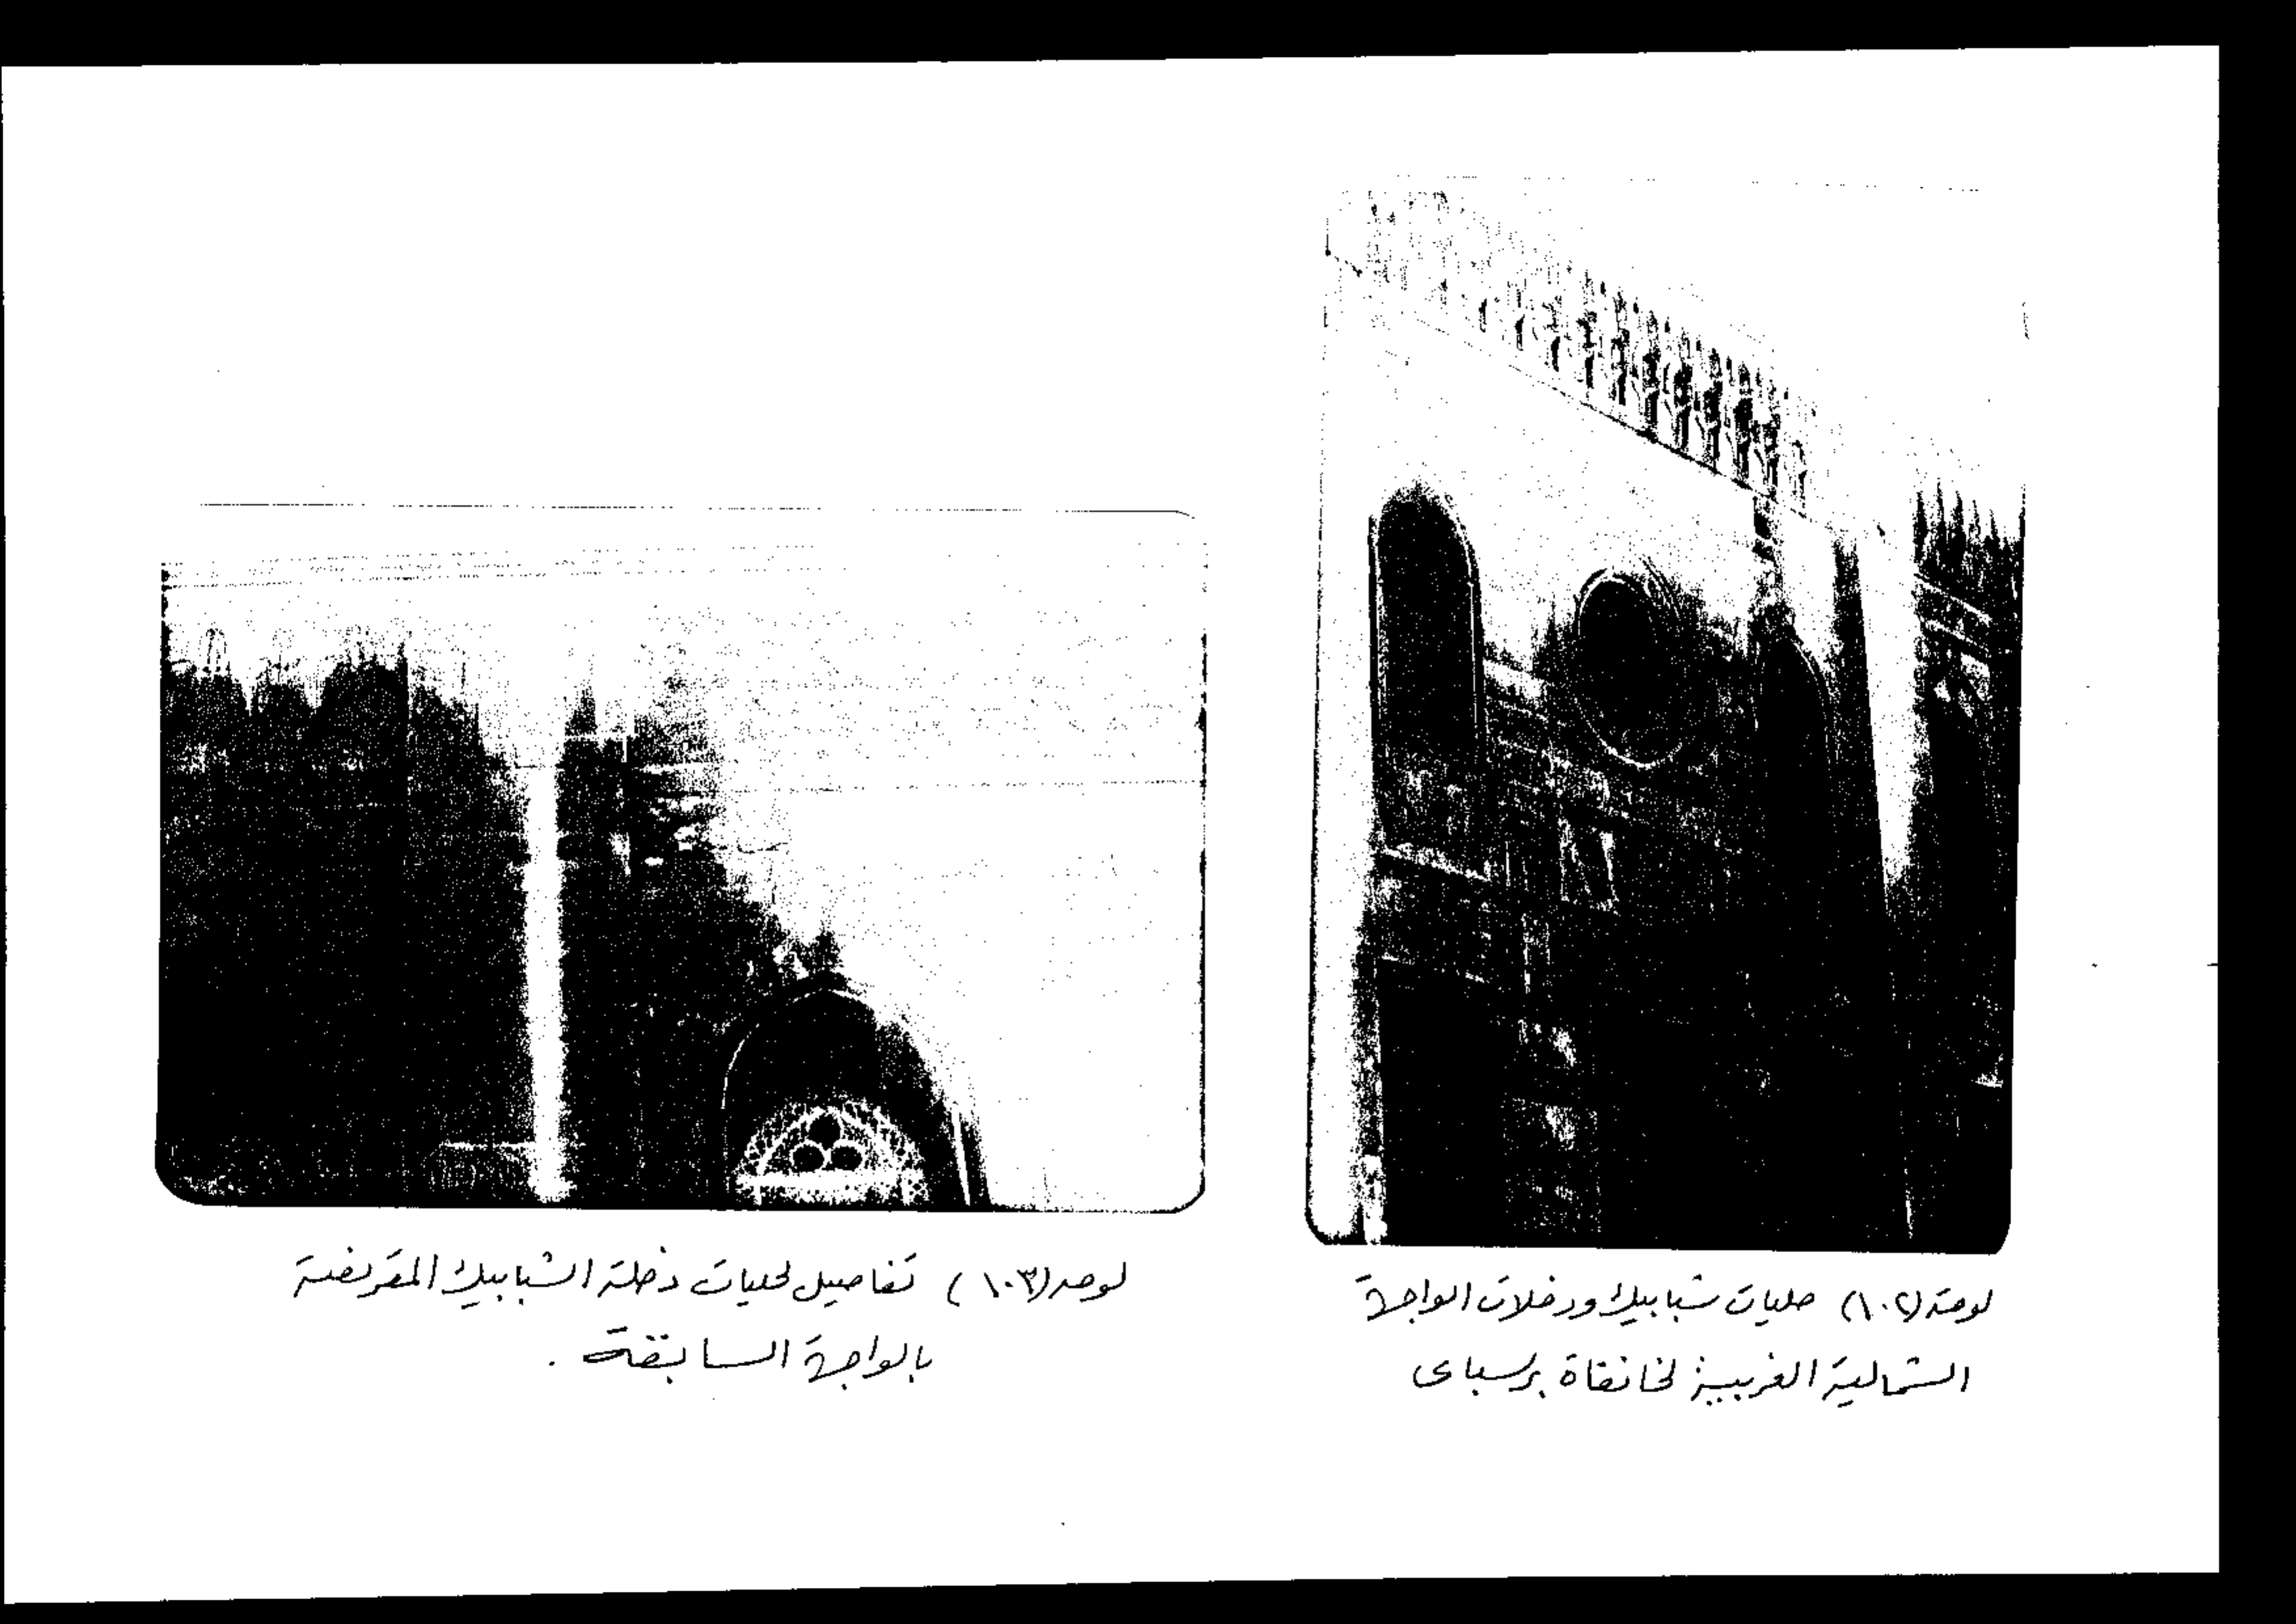 لوحة (١٠٢) حليات شبابيك ودخلات الواجهة
الشمالية الغربية لخانقاة برسباى
لوحة (١٠٣) تفاصيل لحليات دخلة الشبابيك المقرنصة
بالواجهة السابقة .